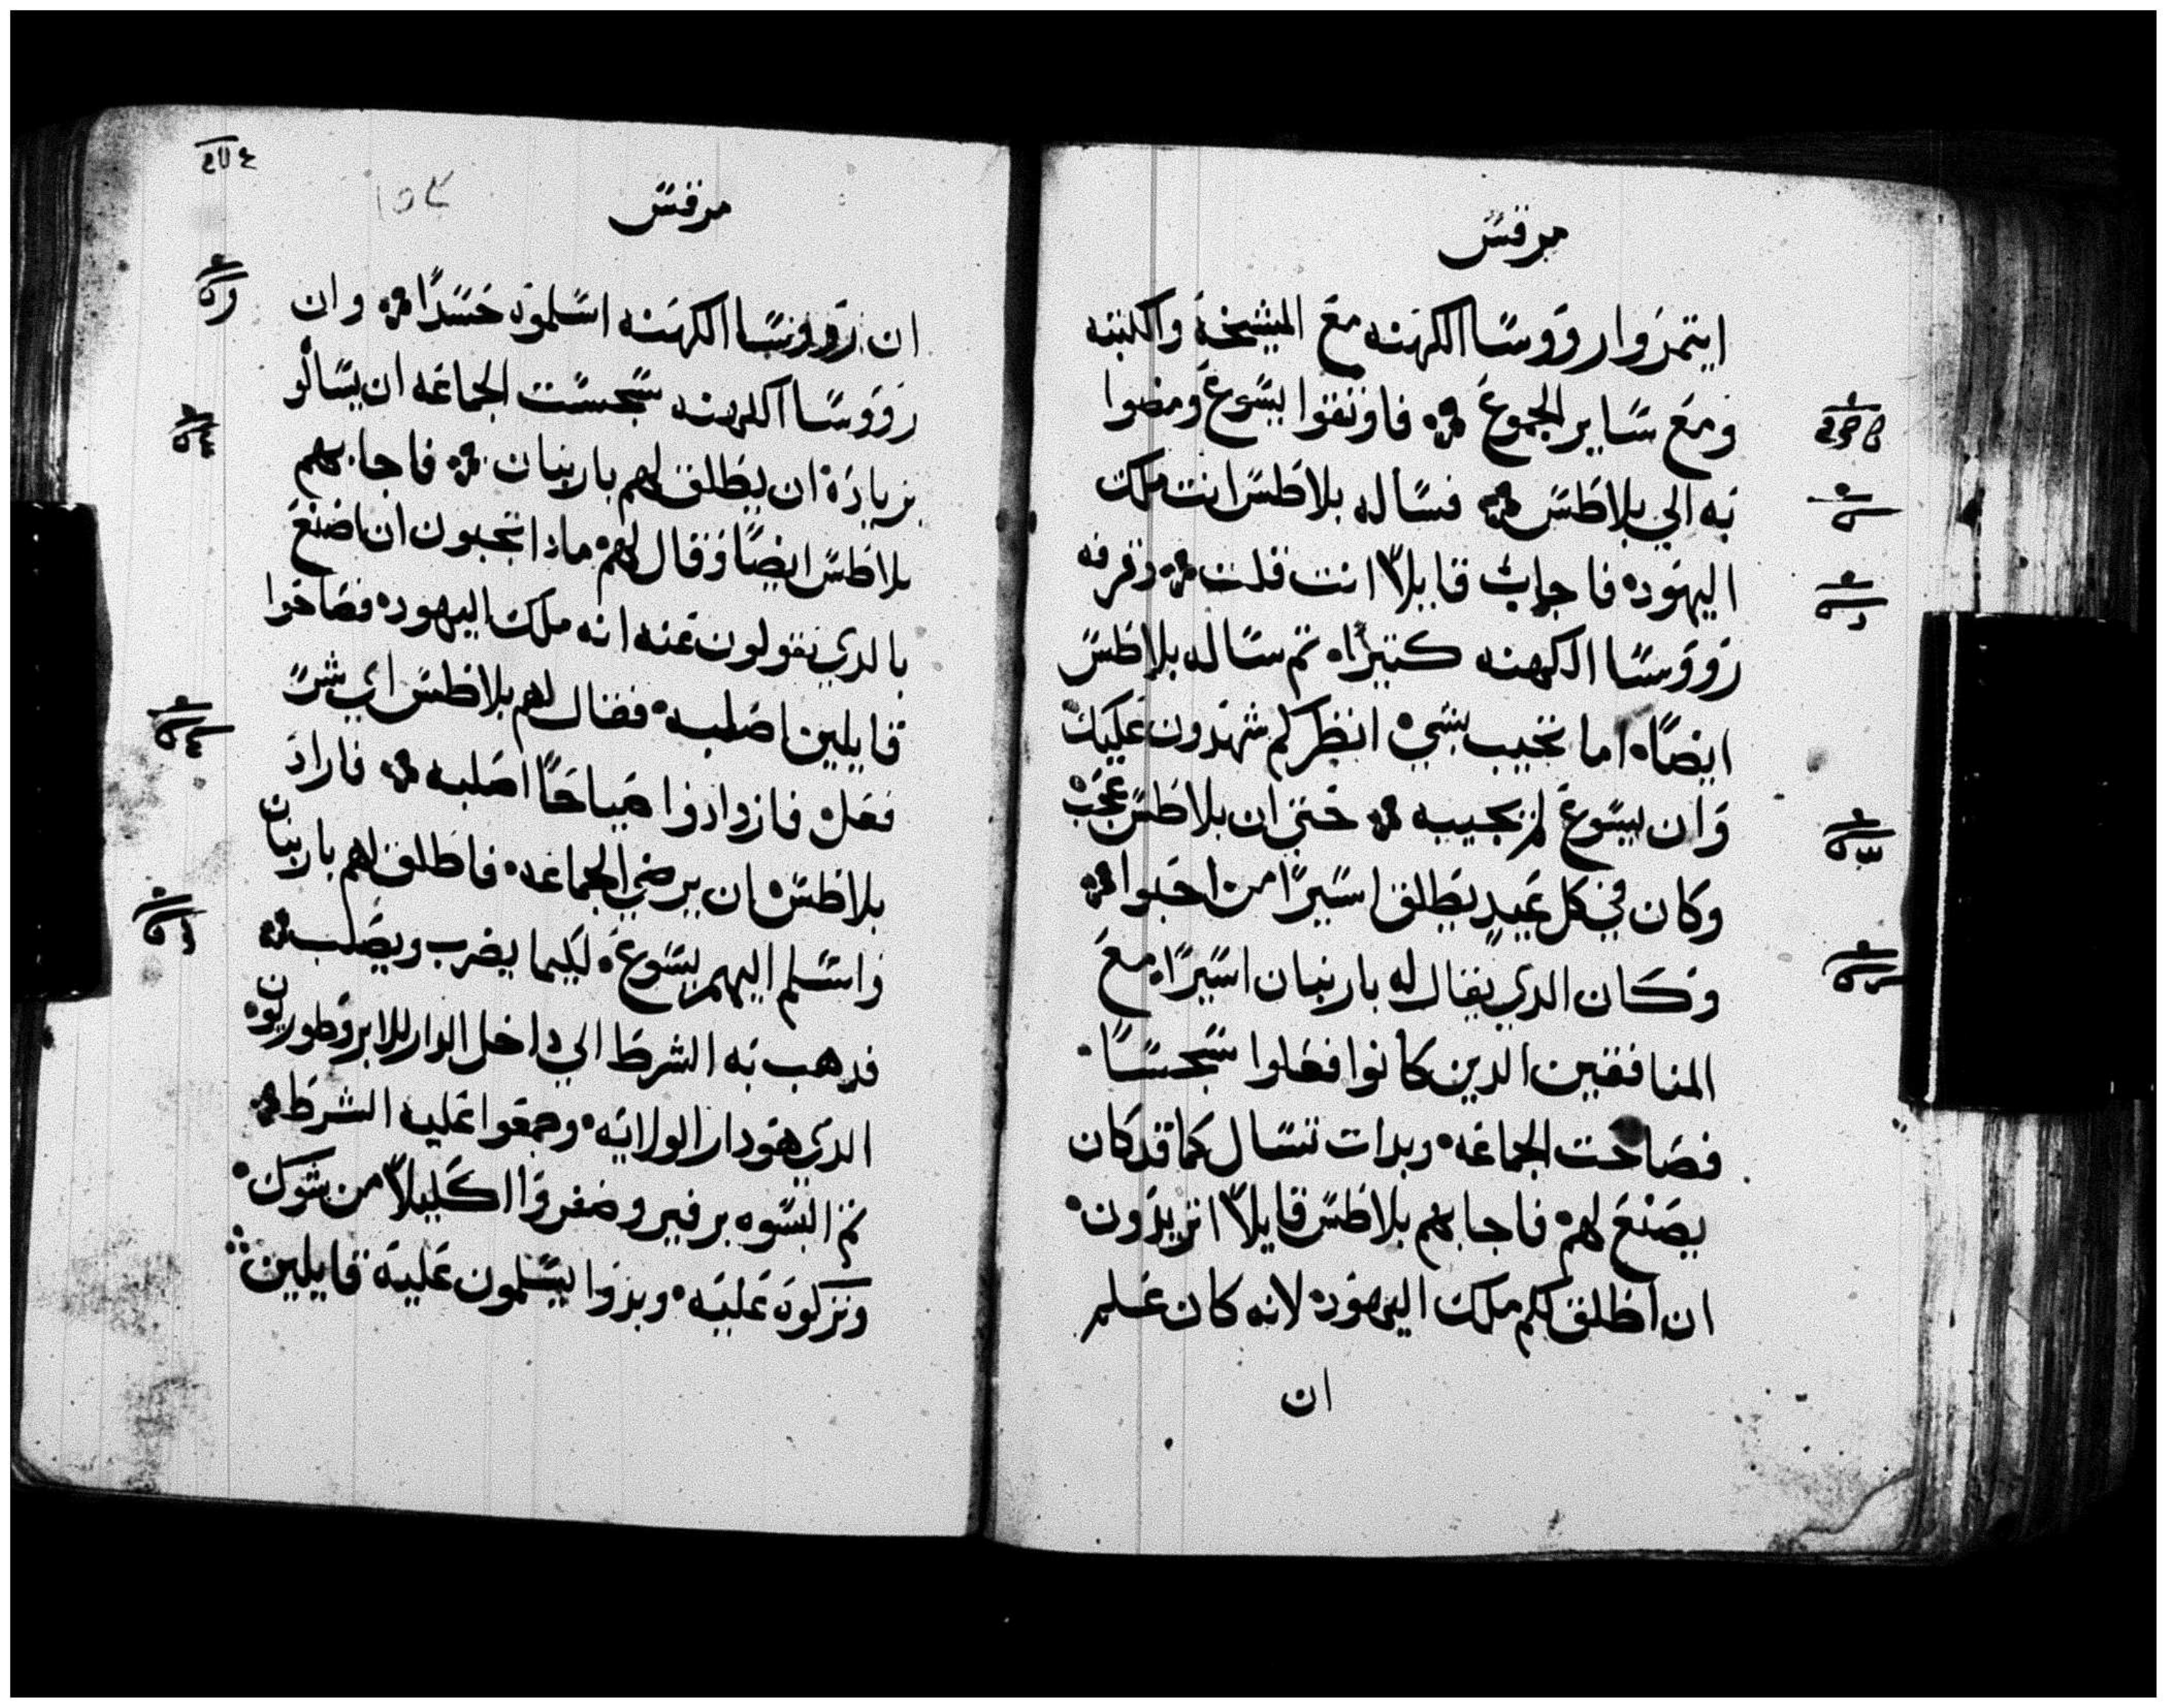 مرقس
ايتمروا رووسا الكهنه مع المشيخة والكتبه
ومع ساير الجموع فاوثقوا يسوع ومضوا
به الي بلاطس فساله بلاطس انت ملك
اليهود فاجاب قايلاً انت قلت وقرفه
رووسا الكهنه كتيرًا تم ساله بلاطس
ايضًا اما تجيب بشي انظر كم شهدون عليك
وان يسوع لم يجيبه حتي ان بلاطس عجب
وكان في كل عيد يطلق اسيرًا من احبوا
وكان الدي يقال له باربنان اسيرًا مع
المنافقين الدين كانوا فعلوا سجسًا
فصاحت الجماعه وبدات تسال كما قد كان
يصنع لهم فاجابهم بلاطس قايلاً اتريدون
ان اطلق لكم ملك اليهود لانه كان علم
ان
مرقس
ان رووسا الكهنه اسلموه حسدًا وان
رووسا الكهنه سجست الجماعه ان يسالو
بزيادة ان يطلق لهم باربنان فاجابهم
بلاطس ايضًا وقال لهم مادا تحبون ان اصنع
بالدي تقولون عنه انه ملك اليهود فصاحوا
قايلين اصلبه فقال لهم بلاطس اي شر
فعل فازدادوا صياحًا اصلبه فاراد
بلاطس ان يرضي الجماعه فاطلق لهم باربنان
واسلم اليهم يسوع ليكيما يضرب ويصلب
فدهب به الشرط الي داخل الدار للابروطوريون
الدي هو دار الولايه وجمعوا عليه الشرط
تم البسوه برفير وضفروا اكليلاً من شوك
وتركوه عليه وبدوا يسلمون عليه قايلين